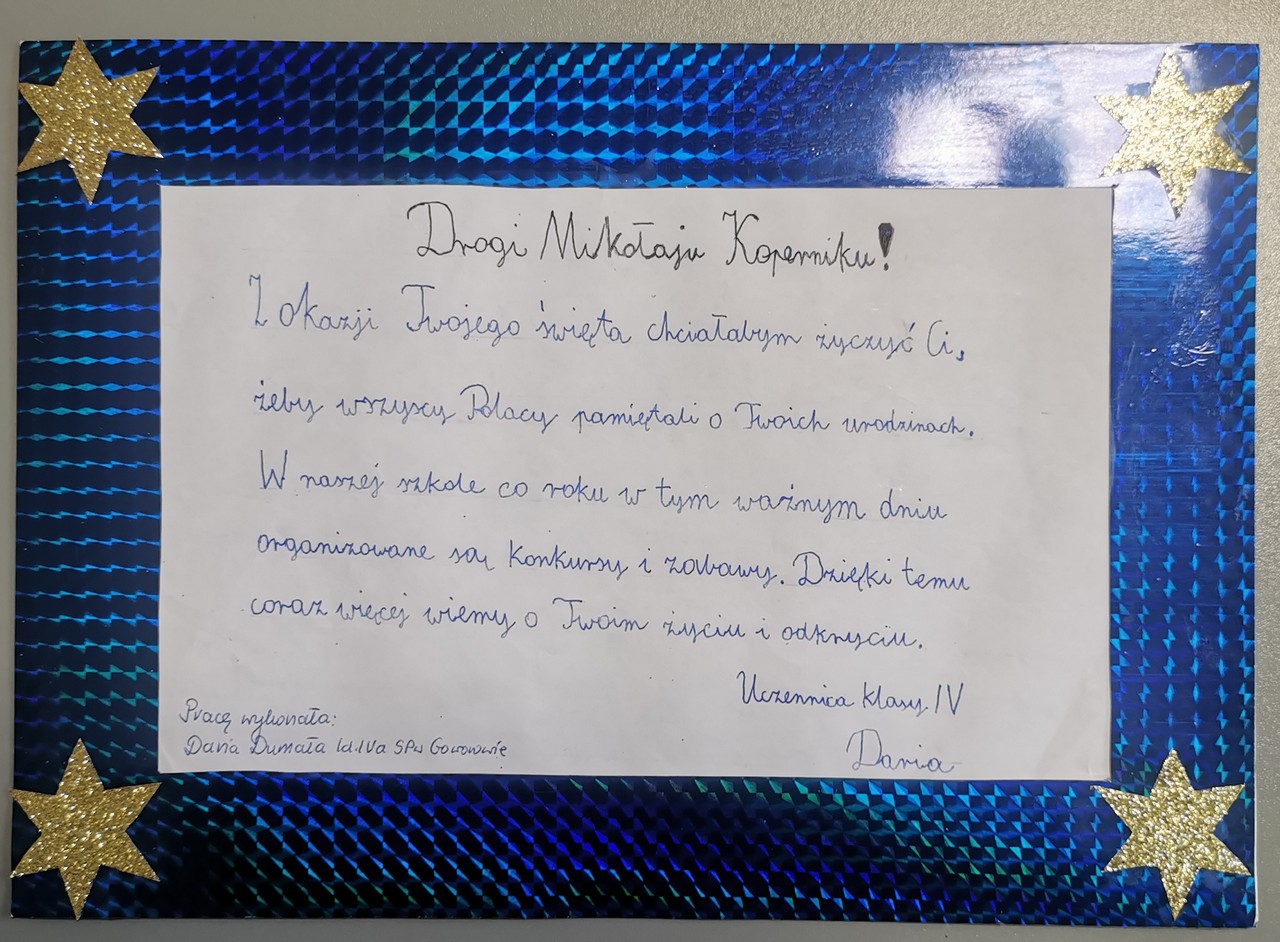 Drogi Mikołaju Koperniku!
Z okazji Twojego święta chciałabym życzyć Ci,
żeby wszyscy Polacy pamiętali o Twoich urodzinach.
W naszej szkole co roku w tym ważnym dniu
organizowane są konkursy i zabawy. Dzięki temu
coraz więcej wiemy o Twoim życiu i odkryciu.
Uczennica klasy IV
Daria
Pracę wykonała:
Daria Dumała kl.IVa SP w Goworowie